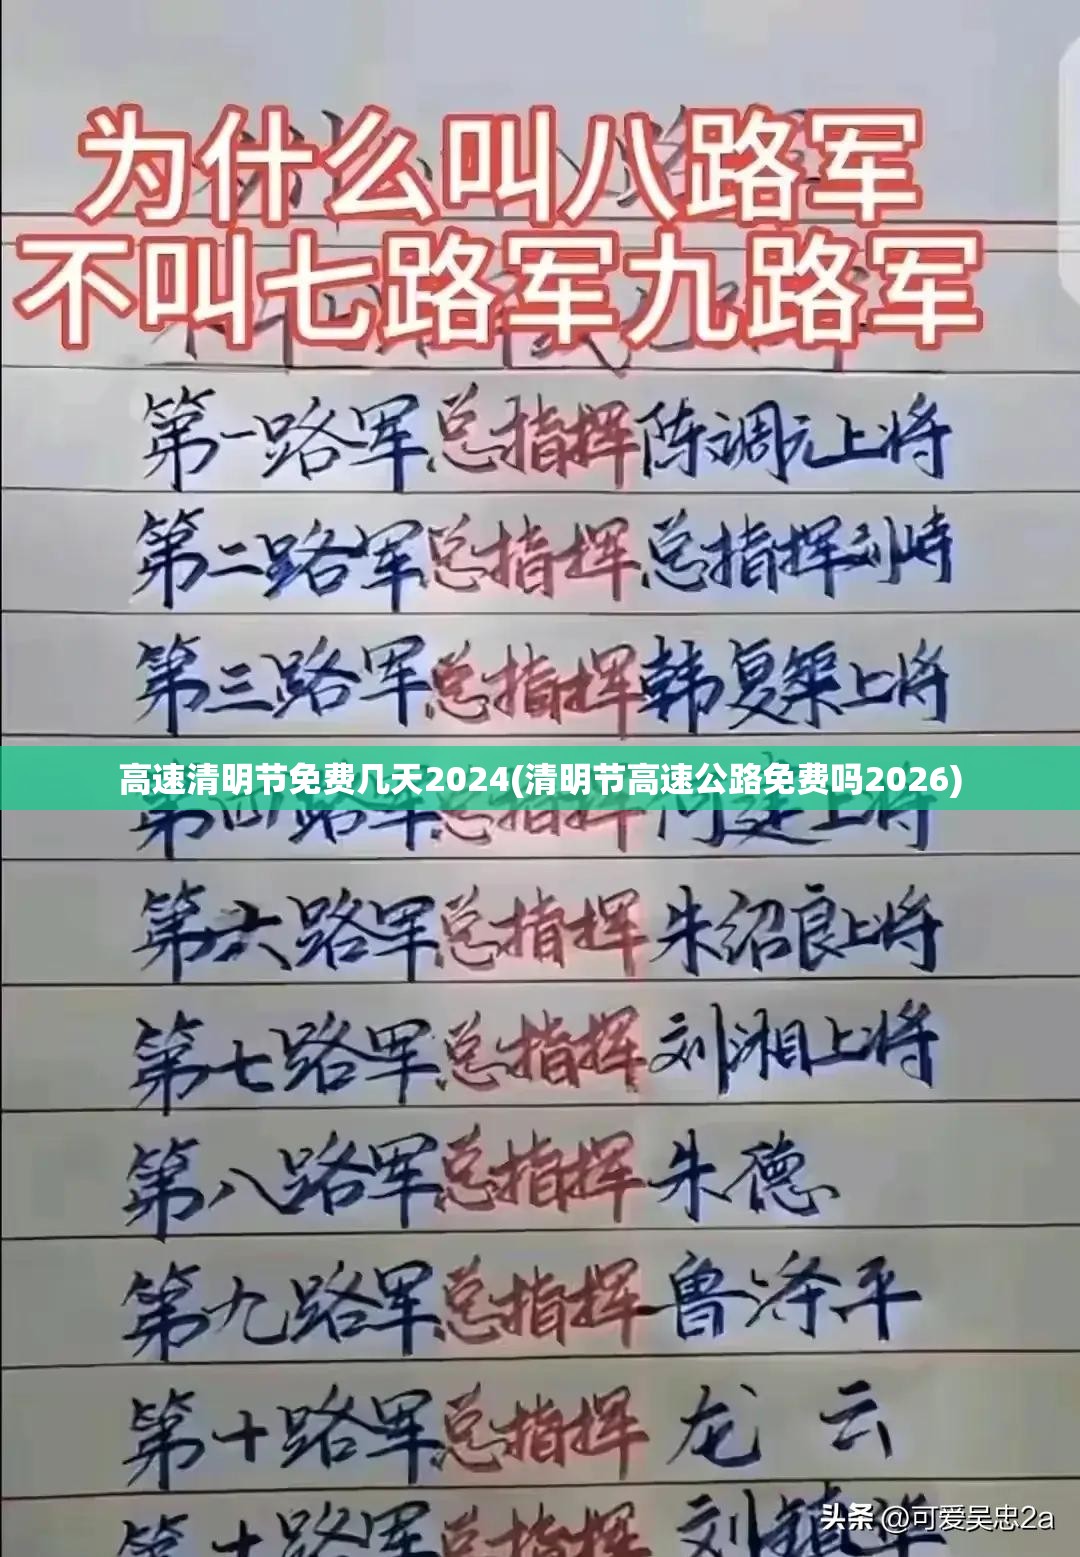 为什么叫八路军
不叫七路军九路军
第一路军总指挥陈调元上将
第二路军总指挥总指挥刘峙
第三路军总指挥韩复榘上将
高速清明节免费几天2024(清明节高速公路免费吗2026)
第四路军总指挥何建上将
第六路军总指挥朱绍良上将
第七路军总指挥刘湘上将
第八路军总指挥朱德
第九路军总指挥鲁涤平
第十路军总指挥龙云
第十路军总指挥刘镇华
头条 @可爱吴忠2a